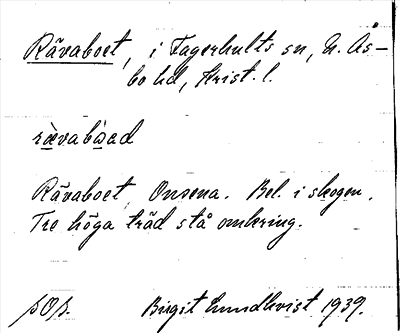 Rävaboet, i Fagerhults sn, N. Ås-
bo hd, Krist. l.
rävabòad
Rävaboet, Onsena. Bel. i skogen.
Tre höga träd stå omkring.
Birgit Lundkvist 1939.